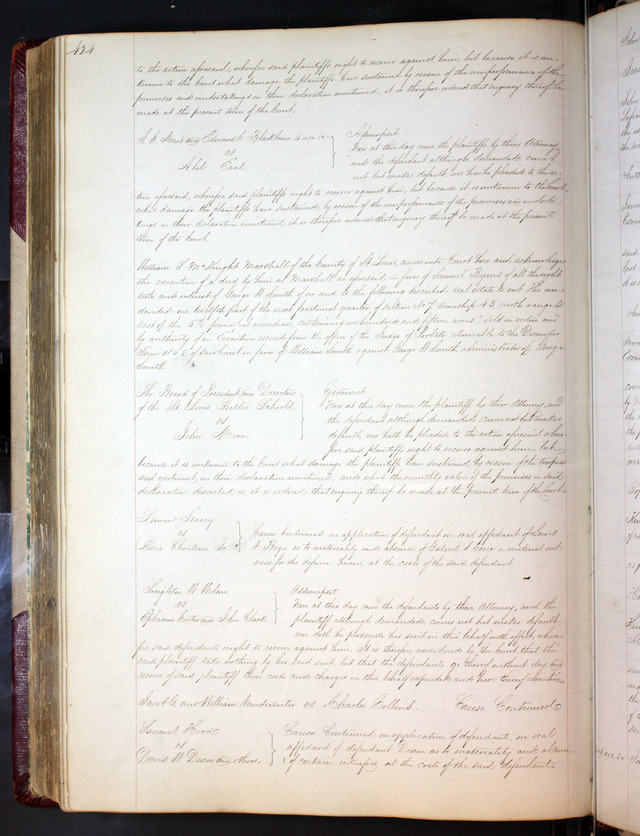 424
to the action aforesaid, wherefore said plaintiffs ought to recover against him, but because it is un-
known to the Court what damage the plaintiffs have sustained by reason of the nonperformance of the
promises and undertakings in their declaration mentioned, it is therefore ordered that enquiry thereof be
made at the present term of the Court.
and Edward C. Blackburn to use
vs
Abel East
Assumpsit
Now at this day come the plaintiffs by their Attorney
and the defendant although demanded comes
not but makes default, nor has he pleaded to the ac-
tion aforesaid, wherefore said plaintiffs ought to recover against him, but because it is unknown to the Court
what damage the plaintiffs have sustained by reason of the nonperformance of the promises and underta-
kings in their declaration mentioned, it is therefore ordered that enquiry thereof be made at the present
term of the Court.
William T. McKnight Marshall of the County of St Louis, comes into Court here and acknowledges
the execution of a deed by him as Marshall as aforesaid, in favor of Samuel of all the right
title and interest of George W Smith of in and to the following described real estate to wit: The un-
divided one twelfth part of the west fractional quarter of section No 7 township 43 north range
East of the 5th principal meridian, containing one hundred and acres Sold in virtue and
by authority of an Execution issued from the office of the Judge of Probate returnable to the December
Term 1845 of said Court in favor of William Smith against George W Smith administrator of George
Smith.
The Board of President and Directors
of the St Louis Public Schools
vs
John
Ejectment
Now at this day come the plaintiff by their Attorney, and
the defendant although demanded comes not but makes
default, nor hath he pleaded to the action aforesaid where-
fore said plaintiffs ought to recover against him, but
because it is unknown to the Court what damage the plaintiffs have sustained by reason of the trespass
and ejectment, in their declaration mentioned, and what the monthly value of the premises in said
declaration described is, it is ordered that enquiry thereof be made at the present term of the Court.
vs
Pierre Chouteau Jr.
Cause Continued on application of defendant on oral affidavit of Lewis
V Bogy as to materiality and absence of Gabriel a material wit-
ness for the defence herein, at the costs of the said defendant
Singleton W Wilson
vs
Ephraim and John Clark
Assumpsit.
Now at this day come the defendants by their Attorney, and the
plaintiff although demanded, comes not but makes default,
nor doth he prosecute his suit in this behalf with effect, where-
fore said defendants ought to recover against him. It is therefore considered by the Court that the
said plaintiff take nothing by his said suit, but that the defendants go thereof without day, and
recover of said plaintiff their costs and charges in this behalf expended and have thereof execution.
Jacob G. and William Vandeventer vs Charles Collins. Cause Continued
Samuel Hood
vs
David W Dixon and others.
Cause Continued on application of defendants, on oral
affidavit of defendant Dixon as to materiality and absence
of certain witnesses at the costs of the said defendants